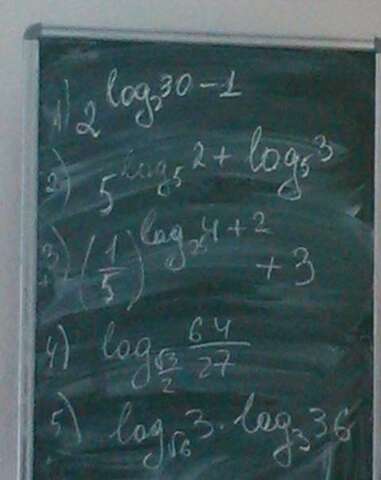 1) 2^(log₂30-1)
2) 5^(log₅2+log₅3)
3) (1/5)^(log₂4+2) +3
4) log_(√3/2) 64/27
5) log_√6 3·log₃36